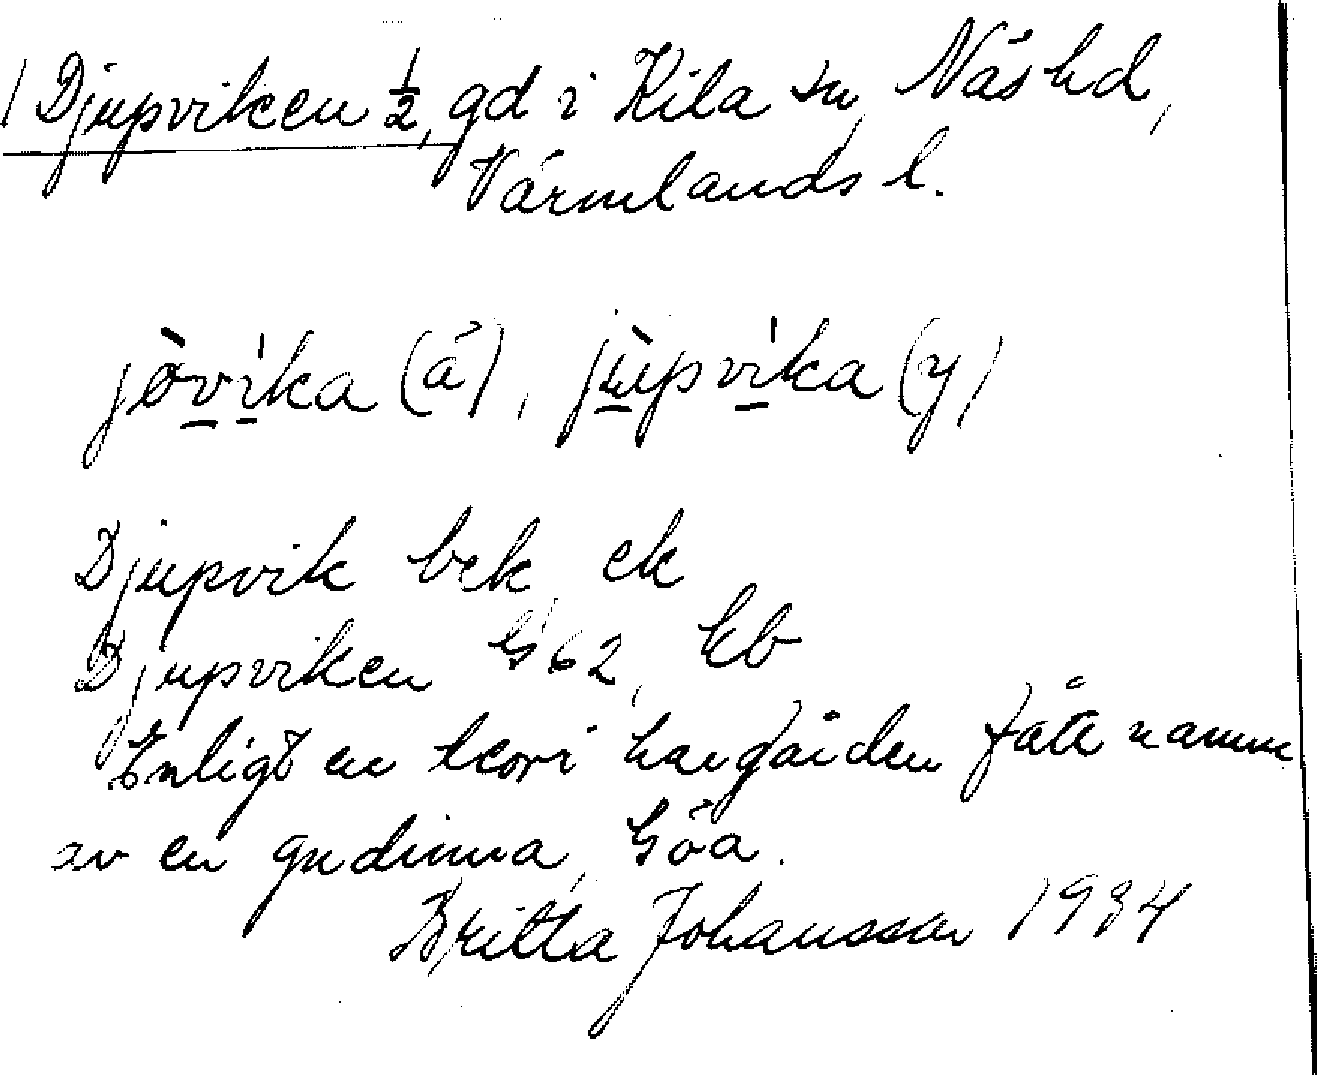 1 Djupviken ½, gd i Kila sn, Näs hd,
Värmlands l.
jòvíka (á), jùpvíka (y)
Djupvik bek, ek
Djupviken G 62, kb
Enligt en teori har gården fått namn
av en gudinna, Göa.
Britta Johansson 1934